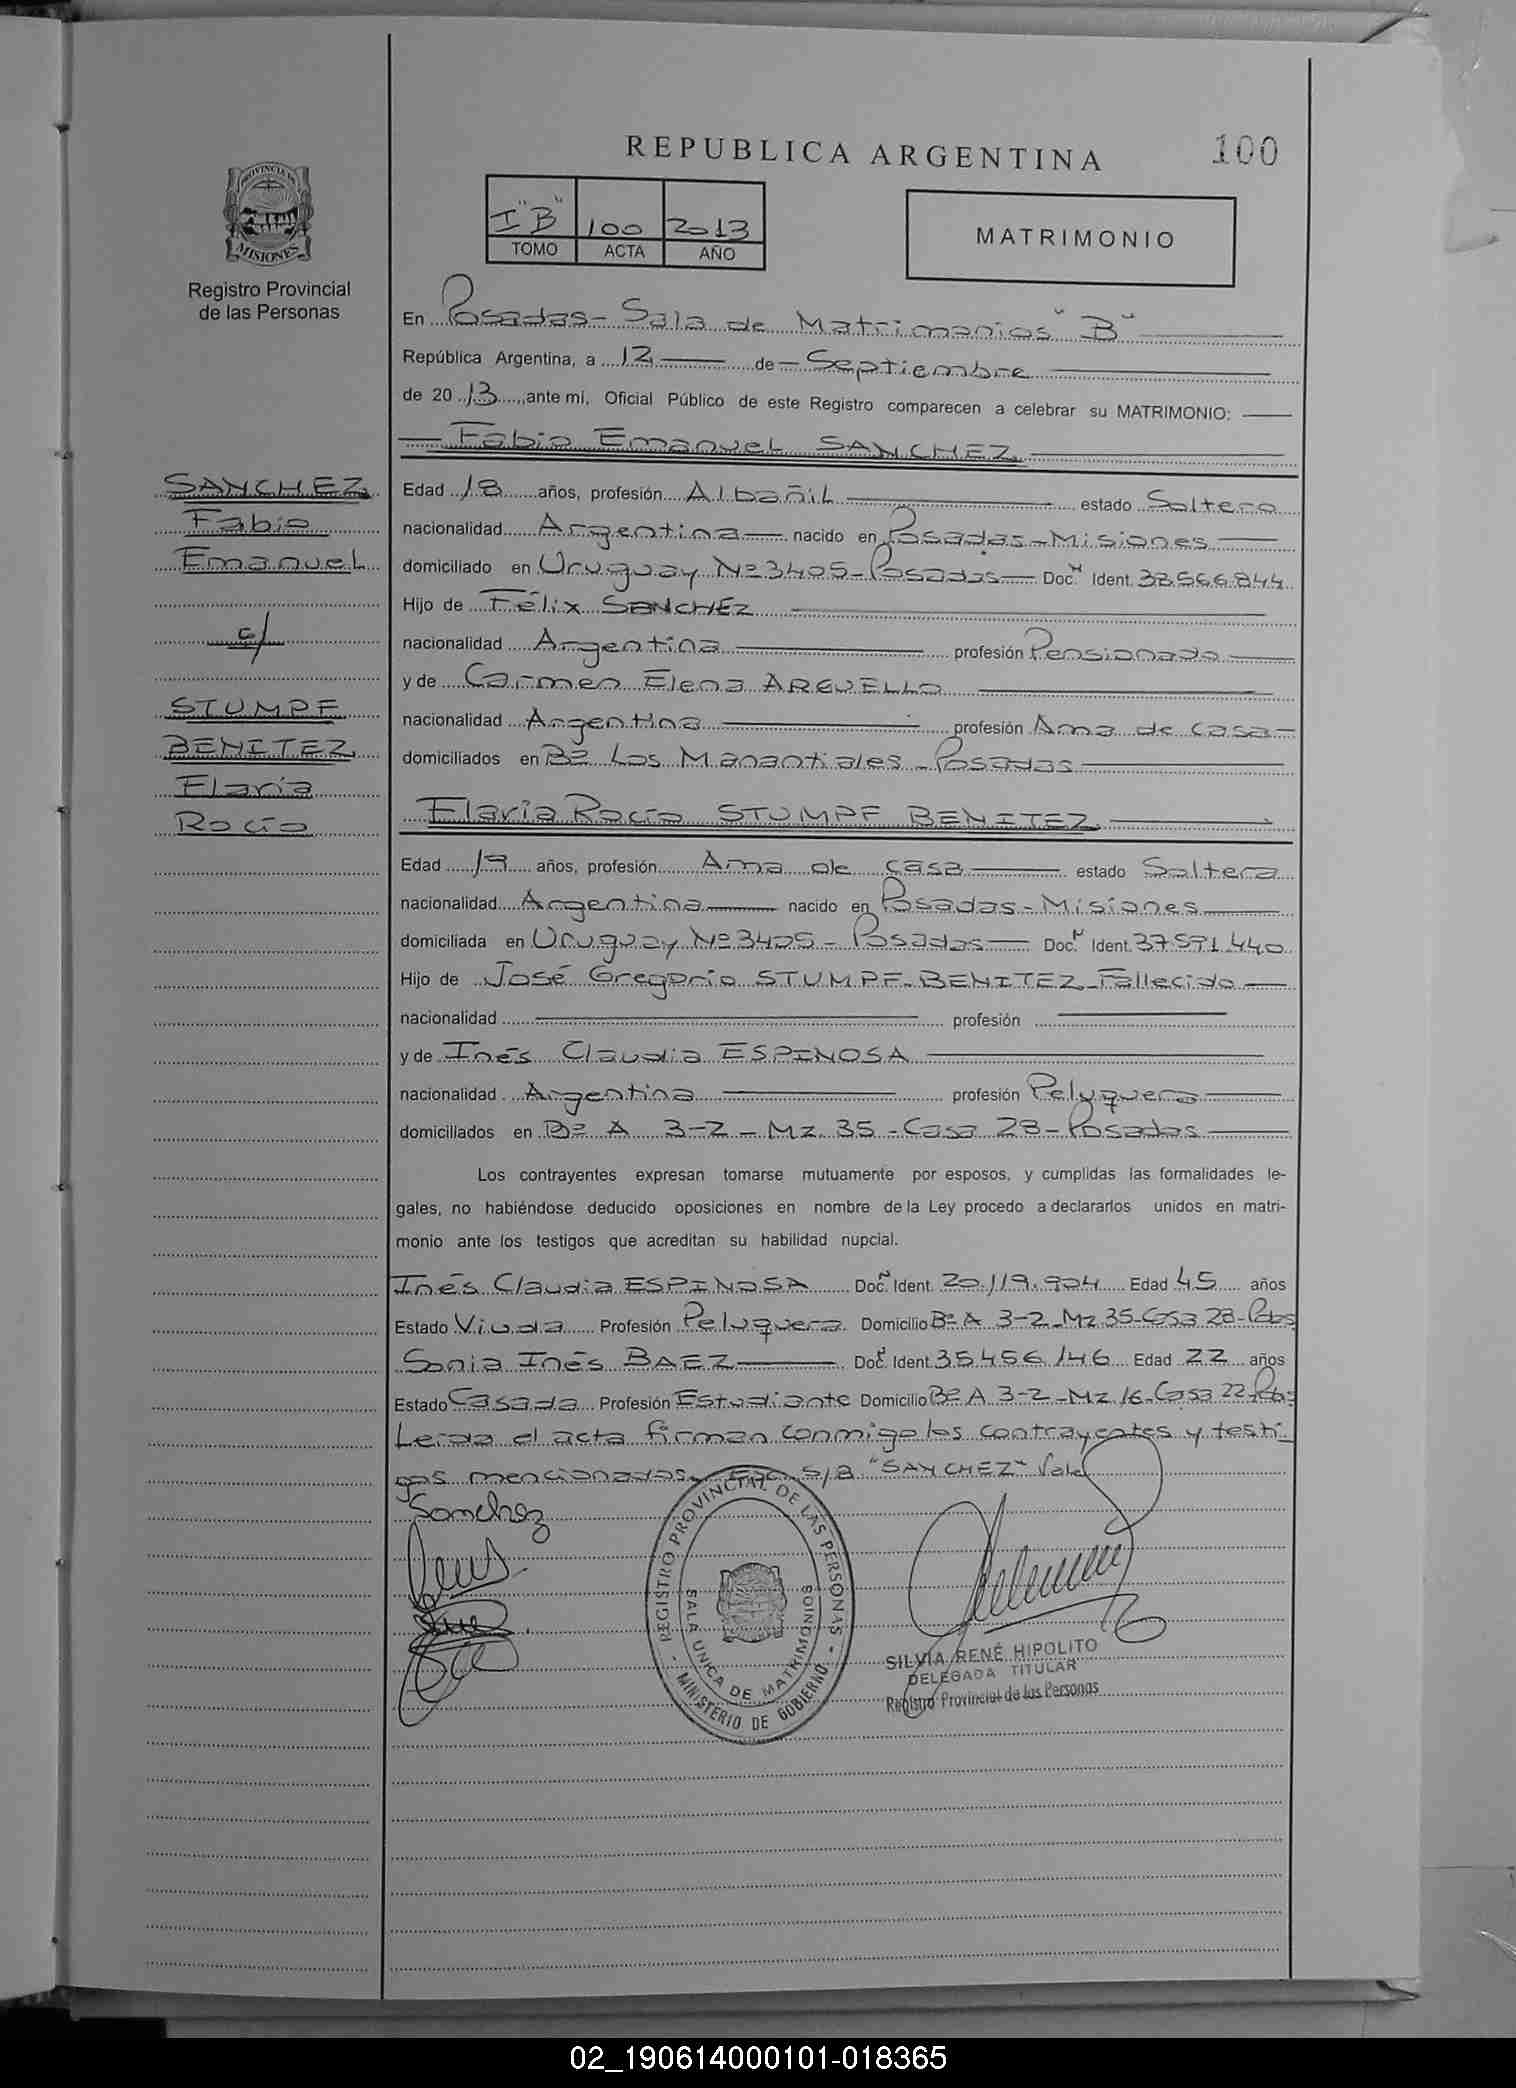 REPUBLICA ARGENTINA
100
PROVINCIA DE
MISIONES
Registro Provincial
de las Personas
I "B" 100 2013
TOMO ACTA AÑO
MATRIMONIO
En Posadas - Sala de Matrimonios "B"
República Argentina, a 12 de Septiembre
de 2013, ante mí, Oficial Público de este Registro comparecen a celebrar su MATRIMONIO:
Fabio Emanuel SANCHEZ
SANCHEZ
Fabio
Emanuel
c/
STUMPF
BENITEZ
Flavia
Rocío
Edad 18 años, profesión Albañil estado Soltero
nacionalidad Argentina nacido en Posadas - Misiones
domiciliado en Uruguay Nº 3405 - Posadas Doc. Ident. 38.566.844
Hijo de Félix SANCHEZ
nacionalidad Argentina profesión Pensionado
y de Carmen Elena ARGUELLO
nacionalidad Argentina profesión Ama de casa
domiciliados en Bº Los Manantiales - Posadas
Flavia Rocío STUMPF BENITEZ
Edad 19 años, profesión Ama de casa estado Soltera
nacionalidad Argentina nacido en Posadas - Misiones
domiciliada en Uruguay Nº 3405 - Posadas Doc. Ident. 37.591.440
Hijo de José Gregorio STUMPF BENITEZ - Fallecido
nacionalidad profesión
y de Inés Claudia ESPINOSA
nacionalidad Argentina profesión Peluquera
domiciliados en Bº A 3-2 - Mz. 35 - Casa 28 - Posadas
Los contrayentes expresan tomarse mutuamente por esposos, y cumplidas las formalidades le-
gales, no habiéndose deducido oposiciones en nombre de la Ley procedo a declararlos unidos en matri-
monio ante los testigos que acreditan su habilidad nupcial.
Inés Claudia ESPINOSA Doc. Ident. 20.119.904 Edad 45 años
Estado Viuda Profesión Peluquera Domicilio Bº A 3-2 - Mz 35 - Casa 28 - Pdas
Sonia Inés BAEZ Doc. Ident. 35.456.146 Edad 22 años
Estado Casada Profesión Estudiante Domicilio Bº A 3-2 - Mz. 16 - Casa 22
Leída el acta firman conmigo los contrayentes y testi-
gos mencionados. S/B "SANCHEZ" Vale
Sanchez
REGISTRO PROVINCIAL DE LAS PERSONAS
SALA UNICA DE MATRIMONIOS
MINISTERIO DE GOBIERNO
SILVIA RENÉ HIPOLITO
DELEGADA TITULAR
Registro Provincial de las Personas
02_190614000101-018365